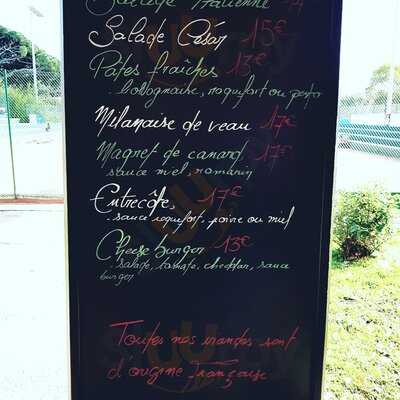 Italienne
Salade César 15€
Pâtes fraîches 13€
. bollognaise, roquefort ou pesto
Milanaise de veau 17€
Magret de canard 17€
sauce miel, romarin
Entrecôte, 17€
. sauce roquefort, poivre ou miel
Cheese burger 13€
. salade, tomate, cheddar, sauce
burger
Toutes nos viandes sont
d'origine Française